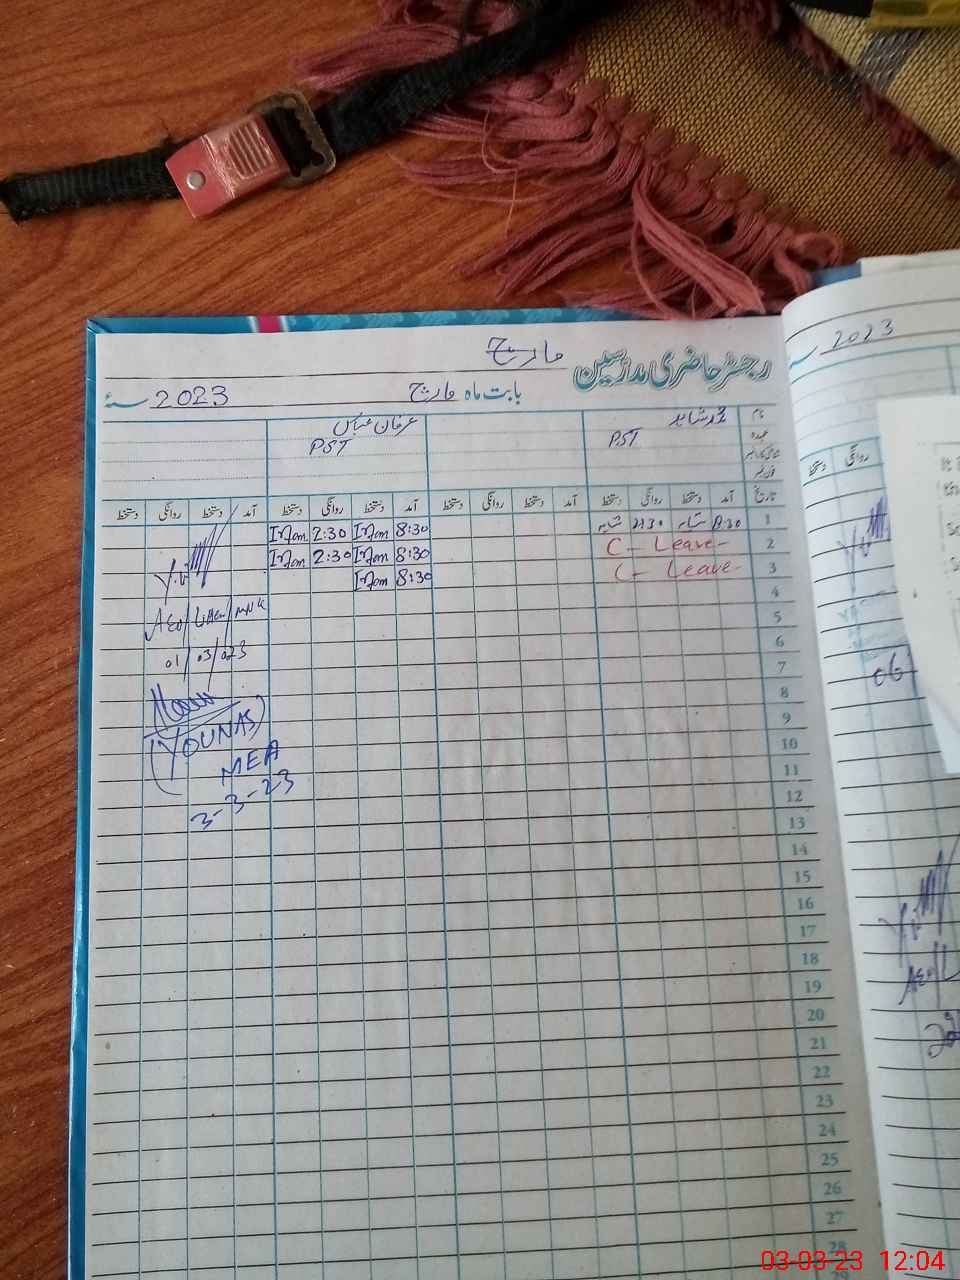 مارچ
رجسٹر حاضری مدرسین
بابت ماہ مارچ
2023 سنہ
2023
نام
عہدہ
محمد شاہد
PST
عرفان عباس
PST
تاریخ
آمد دستخط روانگی دستخط آمد دستخط روانگی دستخط آمد دستخط روانگی دستخط آمد دستخط روانگی دستخط
روانگی دستخط
1 8:30 شاہد 2:30 شاہد 8:30 2:30
2 C - Leave - 8:30 2:30
3 C - Leave - 8:30
4
5
6
7
8
9
10
11
12
13
14
15
16
17
18
19
20
21
22
23
24
25
26
27
28
AEO
01/03/023
(YOUNAS)
MEA
3-3-23
06
AEO
03-03-23 12:04